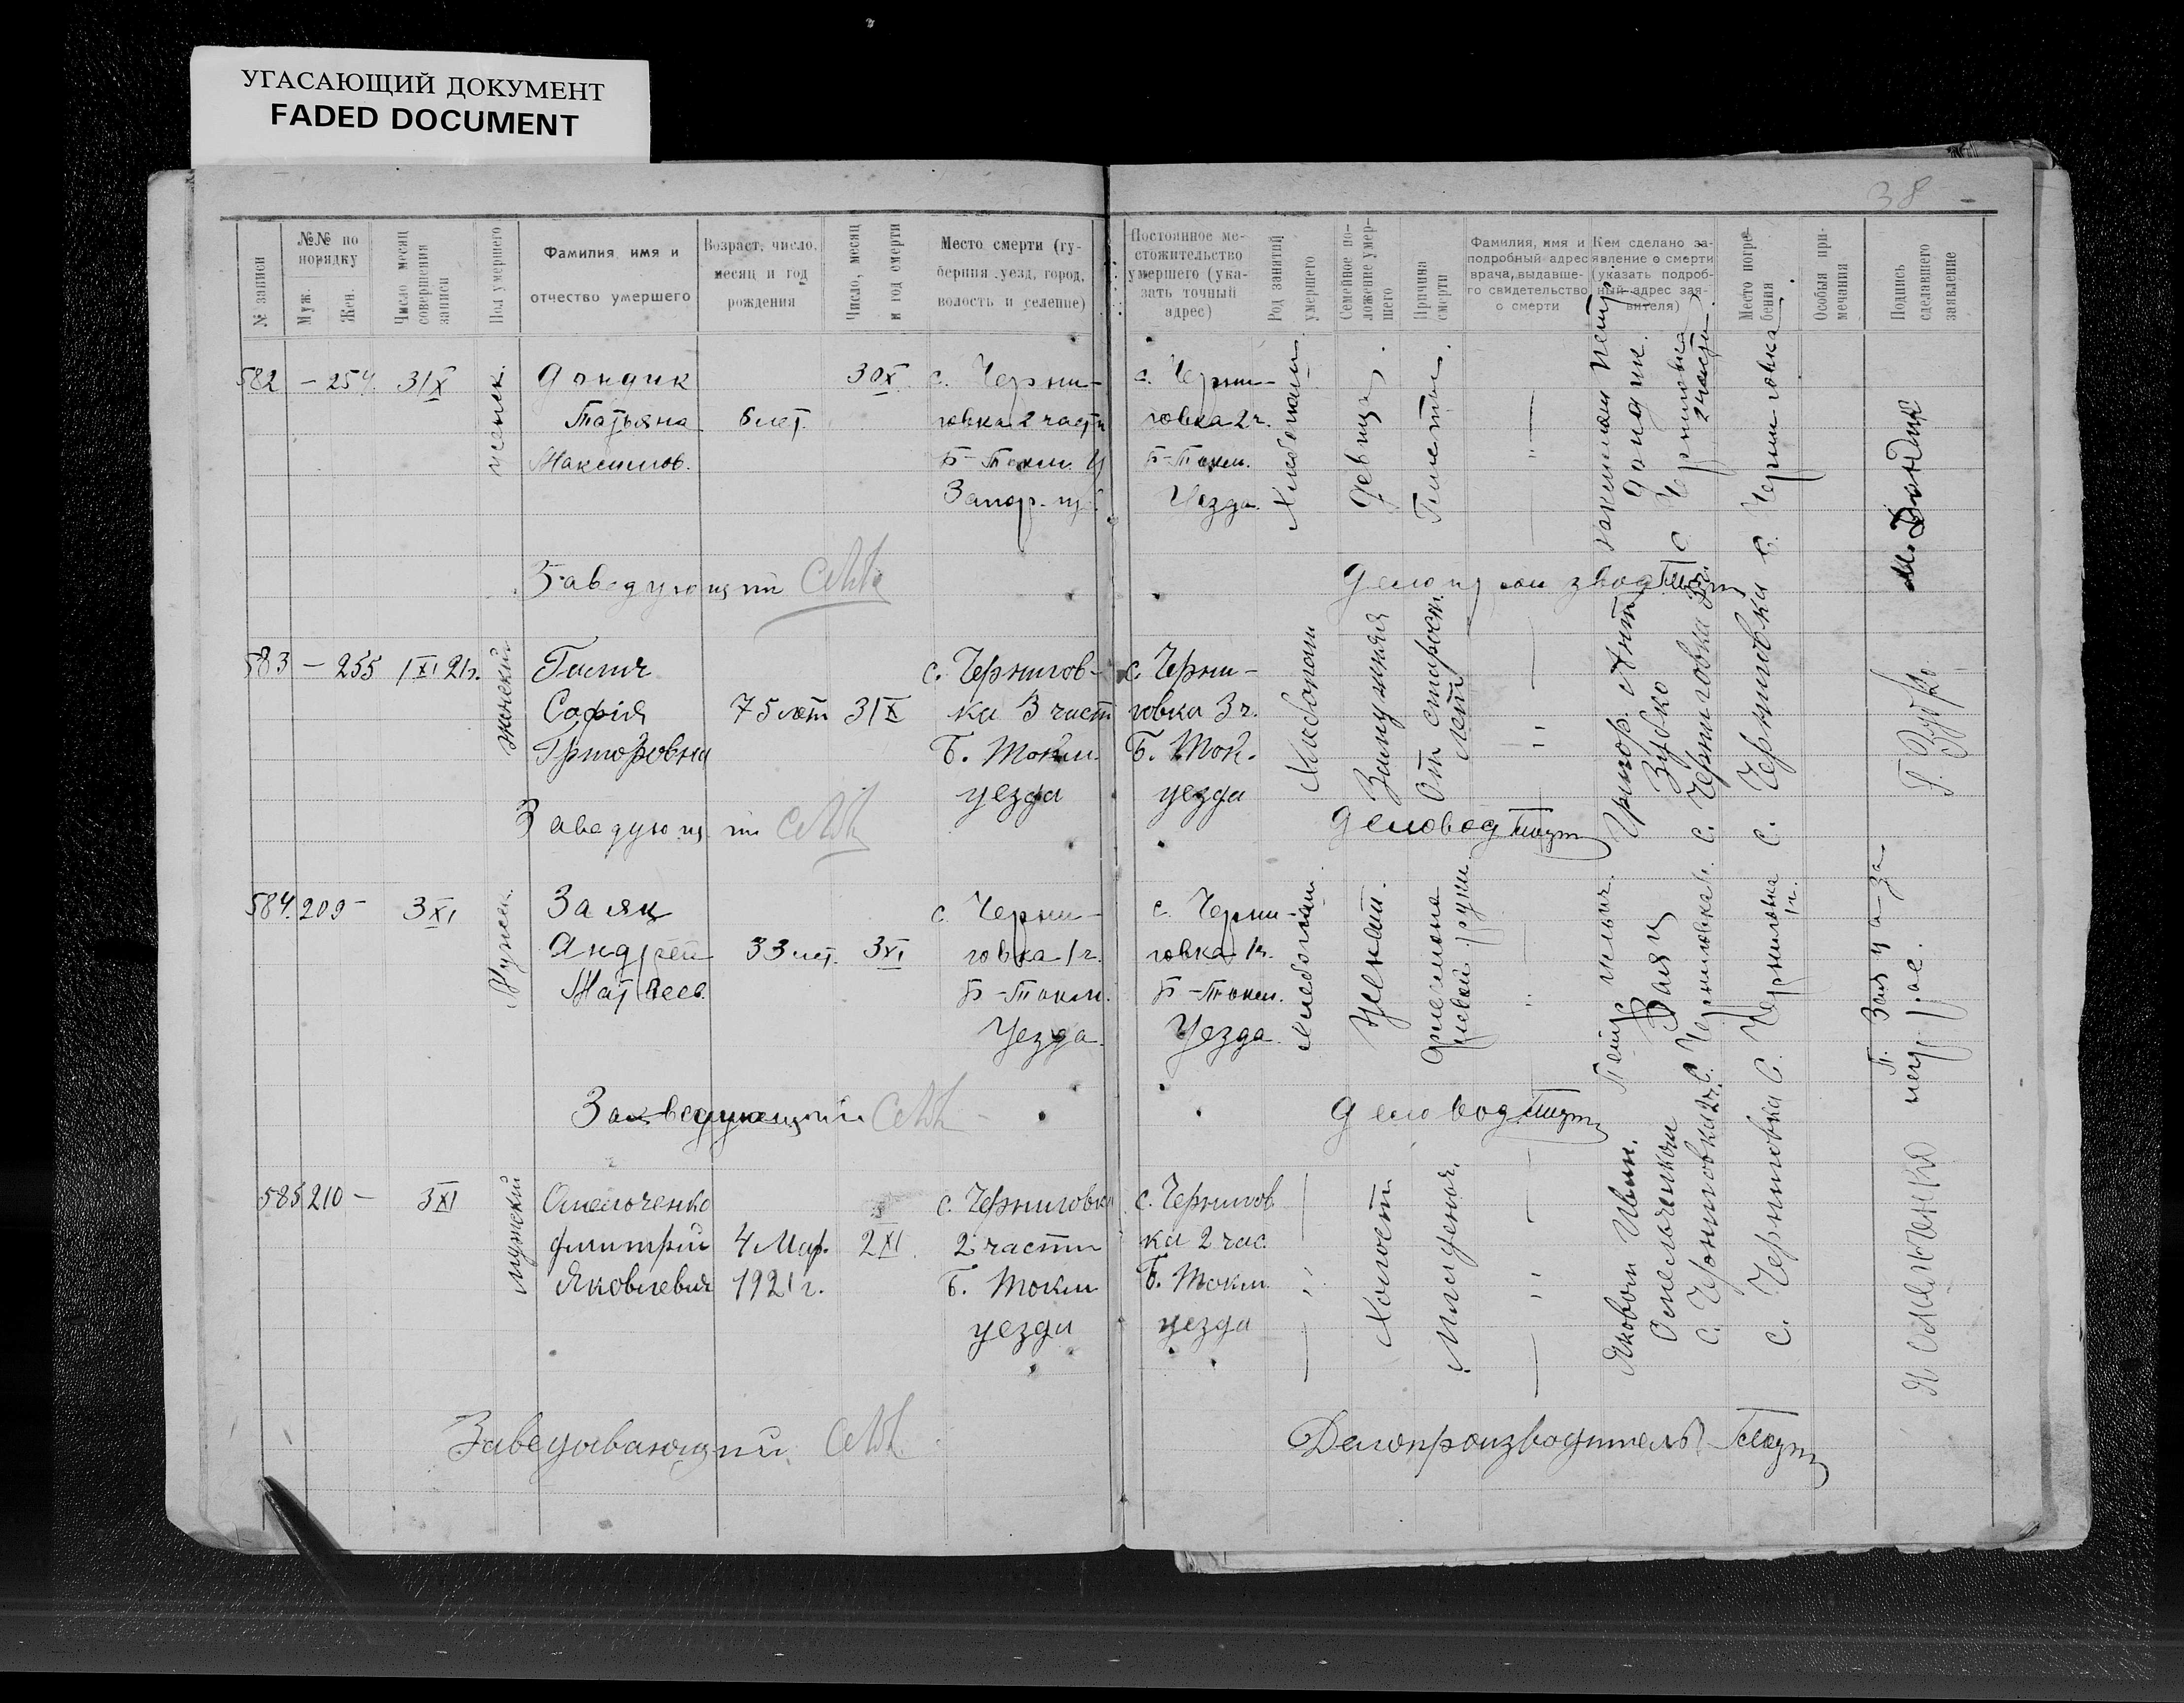 УГАСАЮЩИЙ ДОКУМЕНТ
FADED DOCUMENT
38
№ записи
№№ по порядку
Муж.
Жен.
Число, месяц совершения записи
Пол умершего
Фамилия, имя и отчество умершего
Возраст, число, месяц и год рождения
Число, месяц и год смерти
Место смерти (губерния, уезд, город, волость и селение)
Постоянное местожительство умершего (указать точный адрес)
Род занятий умершего
Семейное положение умершего
Причина смерти
Фамилия, имя и подробный адрес врача, выдавшего свидетельство о смерти
Кем сделано заявление о смерти (указать подробный адрес заявителя)
Место погребения
Особыя примечания
Подпись сделавшего заявление
582 — 254. 31 X
женск.
Дондик
Татьяна
Максимов.
6 лет.
30 X.
с. Черни-
говка 2 части
Б-Токм. У
Запор. губ.
с. Черни-
говка 2 ч.
Б-Токм.
Уезда.
Хлебопаш.
Девица.
— " —
Дондик.
С. Черниговка
2 части.
С. Черниговка
М. Дондик
Заведующий
583 — 255 1 XI 21 г.
женский
София
Григоровна
75 лет 31 X
с. Чернигов-
ка 3 част
Б. Токм.
уезда
с. Черни-
говка 3 ч.
Б. Ток.
уезда
Хлебопаш
Замужняя
От старости
лет
— " —
Григор. Ант.
Зубко
с. Черниговка 3 ч.
с. Черниговки
Г. Зубко
Заведующий
Деловод
584. 209 — 3 XI
Мужск.
Заяц
Андрей
Матвеев.
33 лет. 3 XI
с. Черни-
говка 1 ч.
Б-Токм.
Уезда.
с. Черни-
говка 1 ч.
Б-Токм.
Уезда.
Хлебопаш.
Женат.
левой руки.
— " —
Заяц
С. Черниговка
С. Черниговка
1 ч.
П. Заяц а за
Заведующий
Деловод
585 210 — 3 XI
мужский
Омельченко
Димитрий
Яковлевич
4 Мар.
1921 г.
2 XI.
с. Черниговка
2 части
Б. Токм
уезда
с. Чернигов
ка 2 час.
Б. Токм.
уезда
— " —
Холост
Младенч.
— " —
Яковом Иван.
Омельченком
с. Черниговка 2 ч.
с. Черниговка
Я Омельченко
Заведывающий
Делопроизводитель